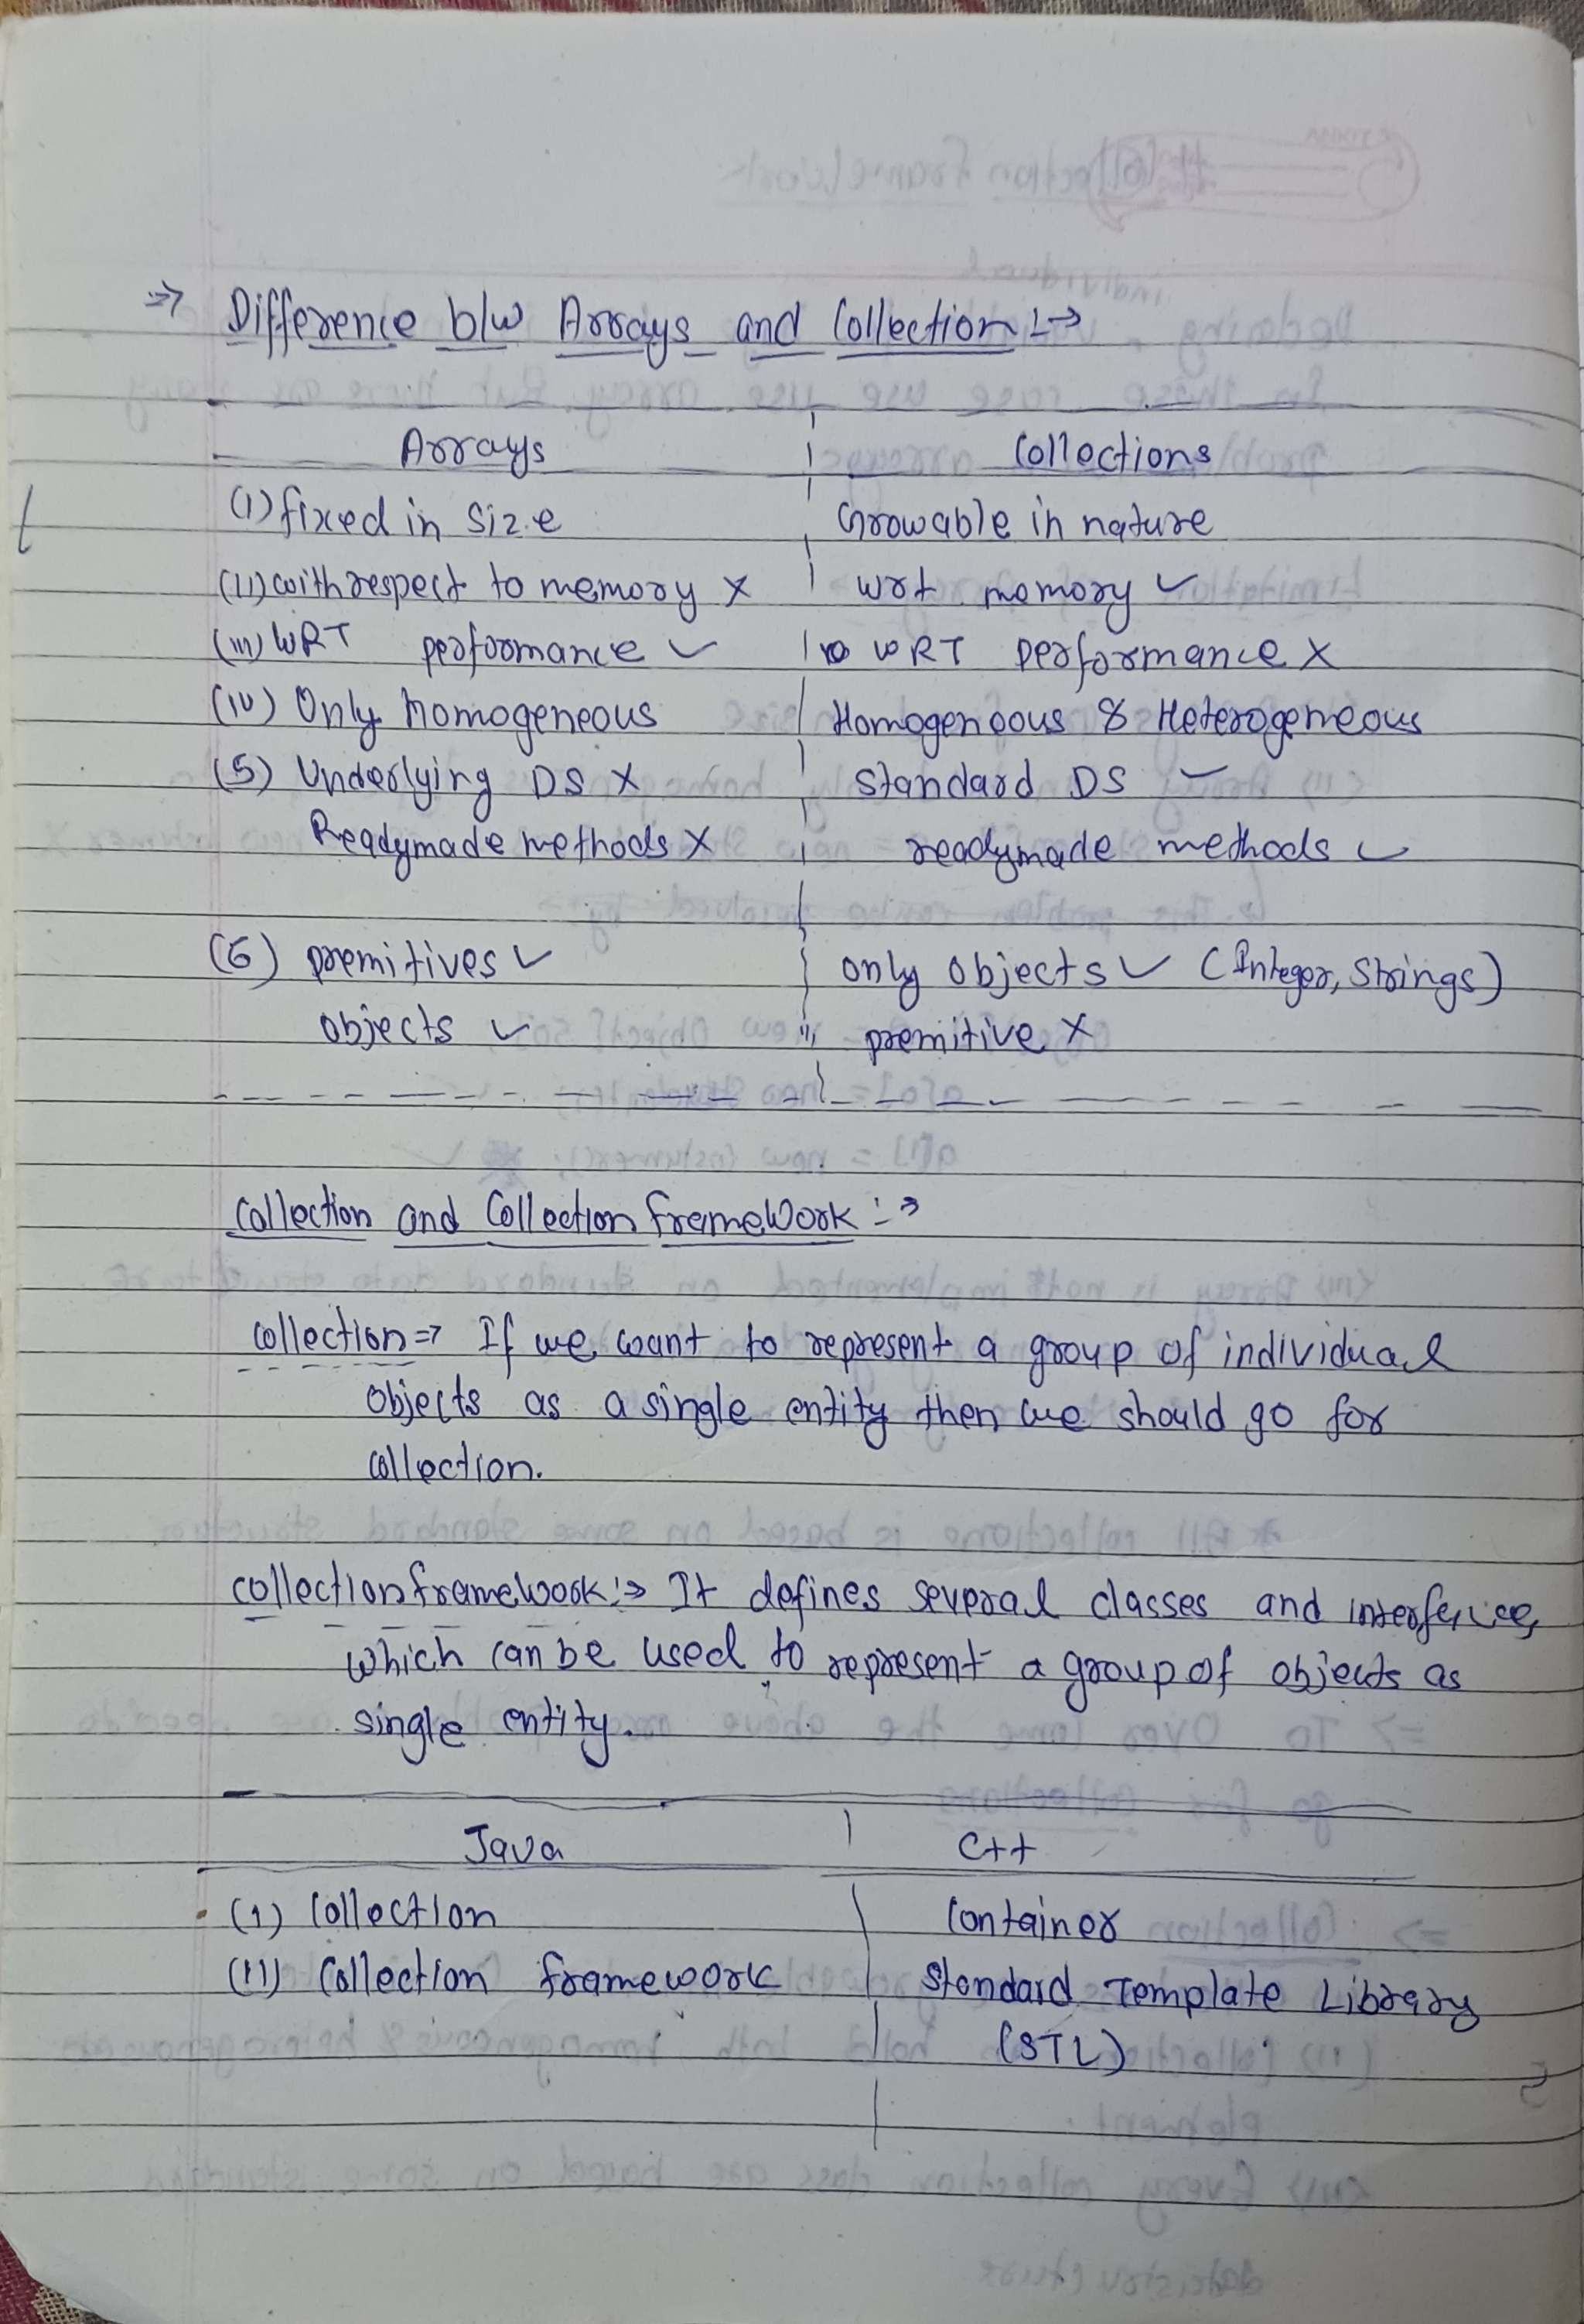 ⇒ Difference b/w Arrays and Collection :→
Arrays | Collections
(i) fixed in Size | Growable in nature
(ii) with respect to memory ✗ | wrt memory ✓
(iii) WRT performance ✓ | WRT performance ✗
(iv) Only homogeneous | Homogeneous & Heterogeneous
(5) Underlying DS ✗ | Standard DS ✓
Readymade methods ✗ | readymade methods ✓
(6) premitives ✓ | only objects ✓ (Integer, Strings)
objects ✓ | premitive ✗
Collection and Collection frameWork :→
Collection ⇒ If we want to represent a group of individual
objects as a single entity then we should go for
collection.
Collection frameWork :→ It defines several classes and
which can be used to represent a group of objects as
single entity.
Java | C++
(1) Collection | Container
(11) Collection framework | Standard Template Library
(STL)